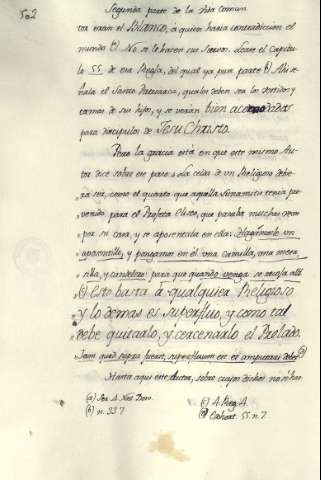 502
Segunda parte de la Vida comun
tar eran el Blanco, á quien hacia contradiccion el
mundo (a) No se le haren sus Leese el Capitu-
lo 55. de esa Regla, del qual ya puse parte (b) Ahi se-
ñala el Santo Patriarca, quales deben ser los vestidos y
camas de sus hijos, y se verán bien acomodadas
para discipulos de Jesu Christo.
Pero la gracia está en que este mismo Au-
tor dice sobre ese paso: La celda de un Religioso debe-
rá ser, como el quarto que aquella Sunamitis tenia pre-
venido para el Profeta Eliseo, que pasaba muchas veces
por su casa, y se aposentaba en ella: Hagamosle un
aposentillo, y pongamos en él una Camilla, una mesa
silla, y candelero: para que quando venga se recoja allí
(c) Esto basta á qualquier Religioso
y lo demas es superfluo, y como tal
debe quitarlo, y cercenarlo el Prelado.
Nam quid supra fuerit, superfluum est et amputari debet (d)
Hasta aqui este Autor, sobre cuyos dichos no habr
(b) n. 337
(c) 4. Reg. 4.
(d) 55. n. 7